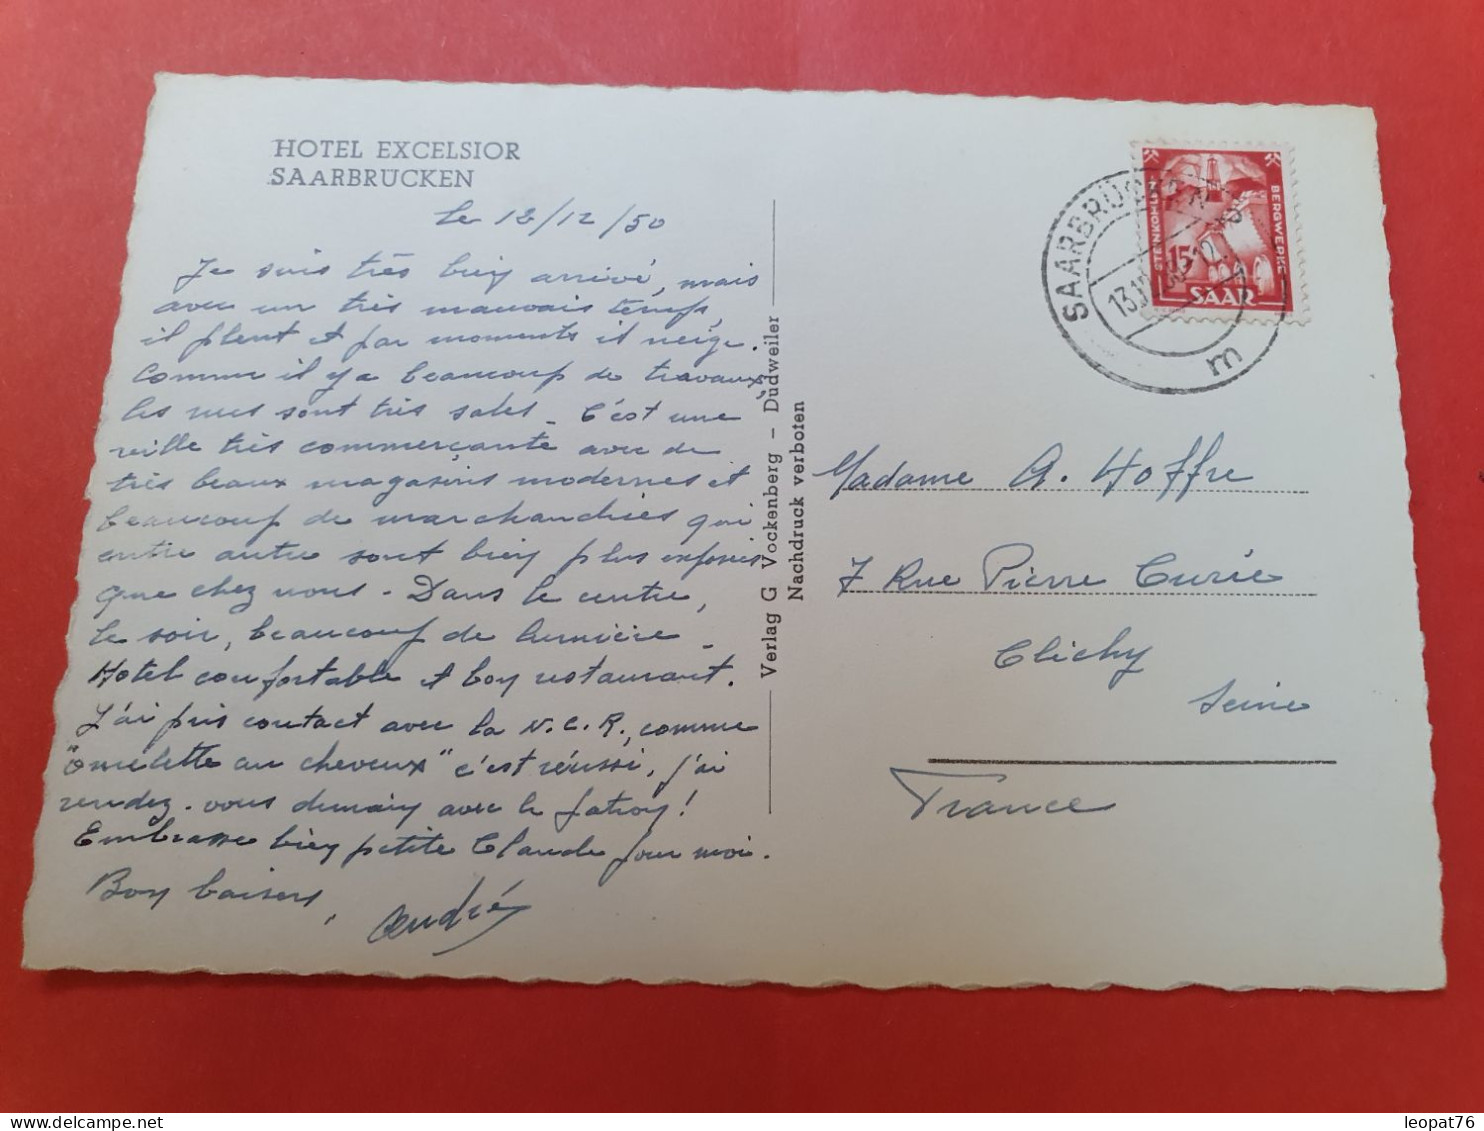 HOTEL EXCELSIOR
SAARBRÜCKEN
le 12/12/50
Je suis très bien arrivé, mais
avec un très mauvais temps,
il pleut et par moments il neige.
Comme il y a beaucoup de travaux,
les rues sont très sales. C'est une
ville très commerçante avec de
très beaux magasins modernes et
beaucoup de marchandises qui
entre autre sont bien plus exposées
que chez nous. Dans le centre,
le soir, beaucoup de lumière.
Hotel confortable et bon restaurant.
J'ai pris contact avec la N.C.R., comme
"omelette au cheveux" c'est réussi, j'ai
rendez-vous demain avec le patron!
Embrasse bien petite Claude pour moi.
Bon baisers,
André
Verlag G Vockenberg – Dudweiler
Nachdruck verboten
SAARBRÜCKEN
13.12.50
m
STEINKOHLEN
BERGWERKE
15
SAAR
Madame A. Hoffre
7 Rue Pierre Curie
Clichy
Seine
France
leopat76